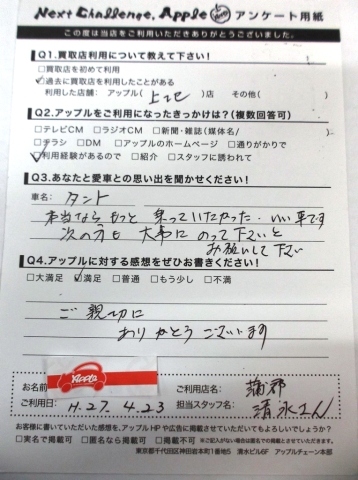 Next Challenge. Apple アンケート用紙
この度は当店をご利用いただきありがとうございました。
Q1.買取店利用について教えて下さい!
□買取店を初めて利用
☑過去に買取店を利用したことがある
利用した店舗: アップル( 上記 )店 その他( )
Q2.アップルをご利用になったきっかけは?(複数回答可)
□テレビCM □ラジオCM □新聞・雑誌(媒体名/ )
□チラシ □DM □アップルのホームページ □通りがかりで
☑利用経験があるので □紹介 □スタッフに誘われて
Q3.あなたと愛車との思い出を聞かせください!
車名: タント
本当なら もっと 乗っていたかった. いい車です
次の方も 大事に のって下さいと
お願いして下さい
Q4.アップルに対する感想をぜひお書きください!
□大満足 ☑満足 □普通 □もう少し □不満
ご親切に
ありがとうございます
お名前
Apple
ご利用店名: 蒲郡
ご利用日: H.27.4.23 担当スタッフ名: 清水さん
お客様に書いていただいた感想を、アップルHPや広告に掲載させていただいてもよろしいでしょうか?
□実名で掲載可 □匿名なら掲載可 □掲載不可 ※ご記入がない場合は匿名での掲載とさせていただきます。
東京都千代田区神田岩本町1番地5 清水ビル6F アップルチェーン本部